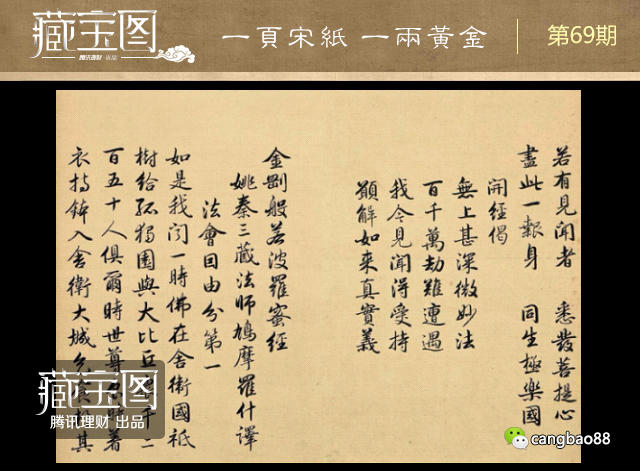 藏宝图
腾讯理财·出品
一頁宋紙 一兩黃金
第69期
若有見聞者 悉發菩提心
盡此一報身 同生極樂國
開經偈
無上甚深微妙法
百千萬劫難遭遇
我今見聞得受持
願解如來真實義
金剛般若波羅蜜經
姚秦三藏法師鳩摩羅什譯
法會因由分第一
如是我聞一時佛在舍衛國祇
樹給孤獨園與大比丘千二
百五十人俱爾時世尊著
衣持鉢入舍衛大城乞其
藏宝图
腾讯理财 出品
cangbao88